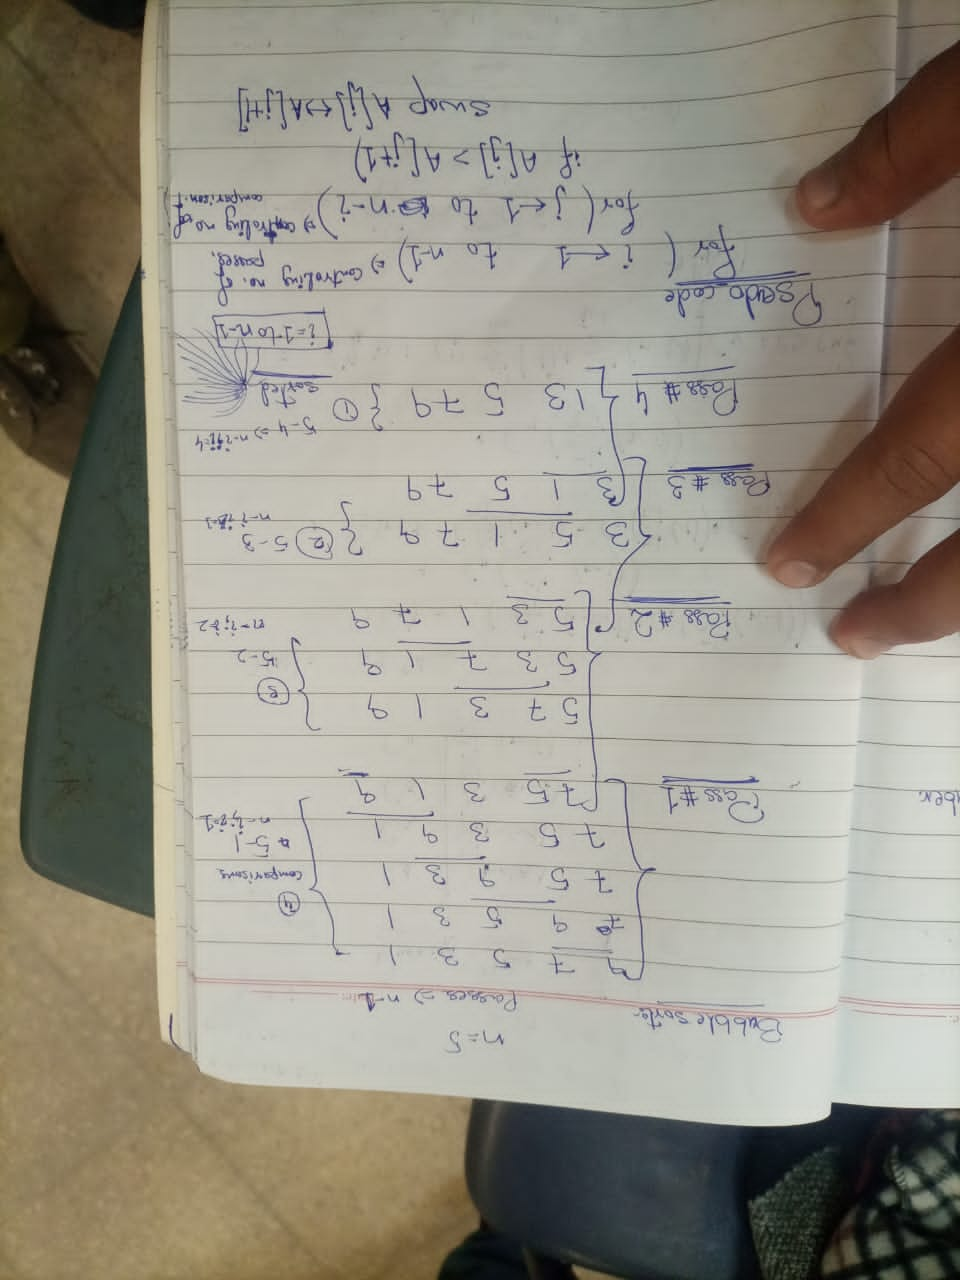 Bubble sort
n=5
Passes => n-1
9 7 5 3 1
7 9 5 3 1
7 5 9 3 1
7 5 3 9 1
Pass #1
7 5 3 1 9
4
comparisons
5-1
n-i, i=1
5 7 3 1 9
5 3 7 1 9
Pass #2
5 3 1 7 9
3
5-2
n-i, i=2
3 5 1 7 9
2 5-3
n-i, i=3
Pass #3
3 1 5 7 9
Pass #4
1 3 5 7 9
1
5-4 => n-i, i=4
sorted
i=1 to n-1
Psudo code
for ( i ← 1 to n-1) => controling no. of passes.
for ( j ← 1 to n-i) => controling no of comparison.
if A[j] > A[j+1)
Swap A[j] ↔ A[j+1]